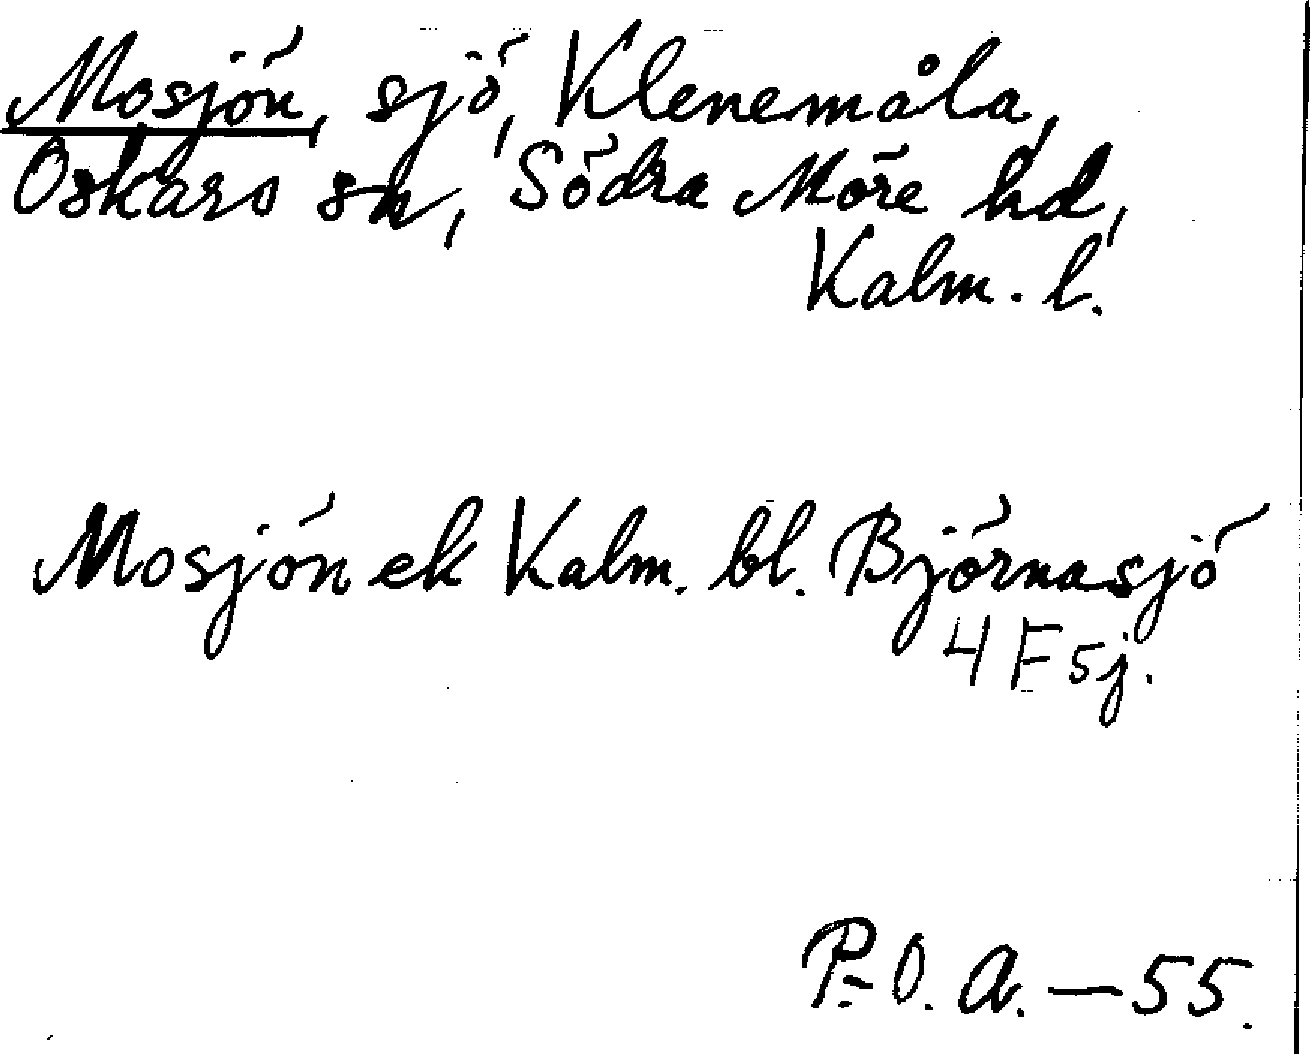 Mosjön, sjö, Klenemåla,
Oskars sn, Södra Möre hd,
Kalm. l.
Mosjön ek Kalm. bl. Björnasjö
4 F sj.
P.-O. A. — 55.